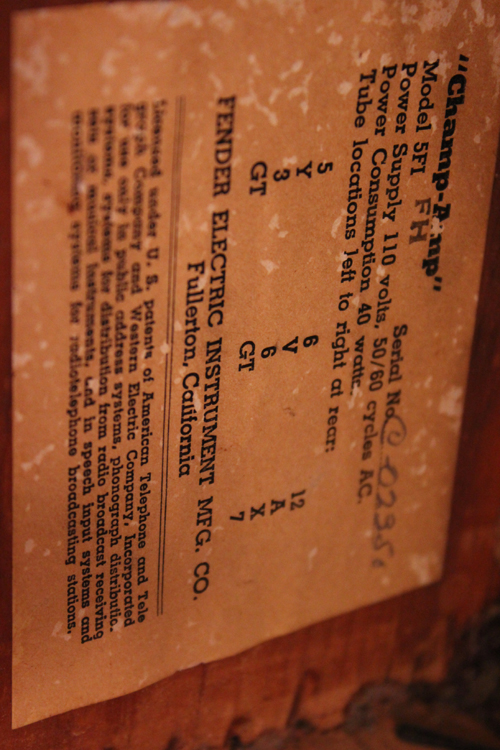 "Champ-Amp"
Model 5F1 FH Serial No. C 0235
Power Supply 110 volts, 50/60 cycles AC.
Power Consumption 40 watts.
Tube locations left to right at rear:
5 6 12
Y V A
3 6 X
GT GT 7
FENDER ELECTRIC INSTRUMENT MFG. CO.
Fullerton, California
Licensed under U. S. patents of American Telephone and Tele
graph Company and Western Electric Company, Incorporated
for use only in public address systems, phonograph distributic.
systems, systems for distribution from radio broadcast receiving
sets or musical instruments, and in speech input systems and
monitoring systems for radiotelephone broadcasting stations.